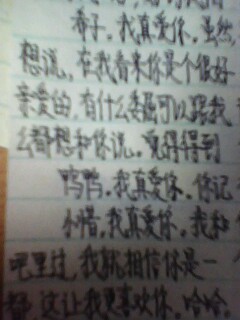 希子。我真爱你。虽然,
想说,在我看来你是个很好
亲爱的,有什么委屈可以跟我
么都想和你说。觉得得到
鸭鸭。我真爱你。你记
小惜。我真爱你。我和
吧里过,我就相信你是一
好,这让我更喜欢你。哈哈。